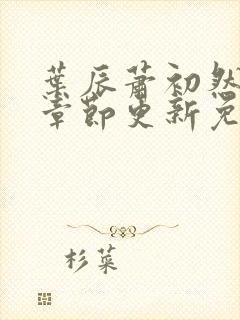 葉辰蕭初然
章節更新免
杉菜